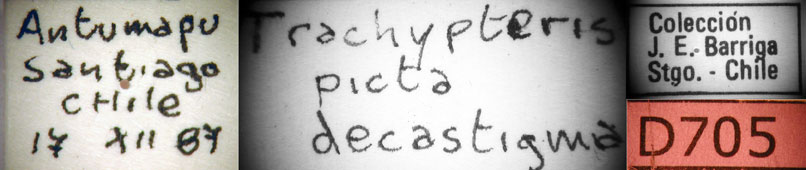 Antumapu
Santiago
CHile
17 XII 87
Trachypteris
picta
decastigma
Colección
J. E.- Barriga
Stgo. - Chile
D705